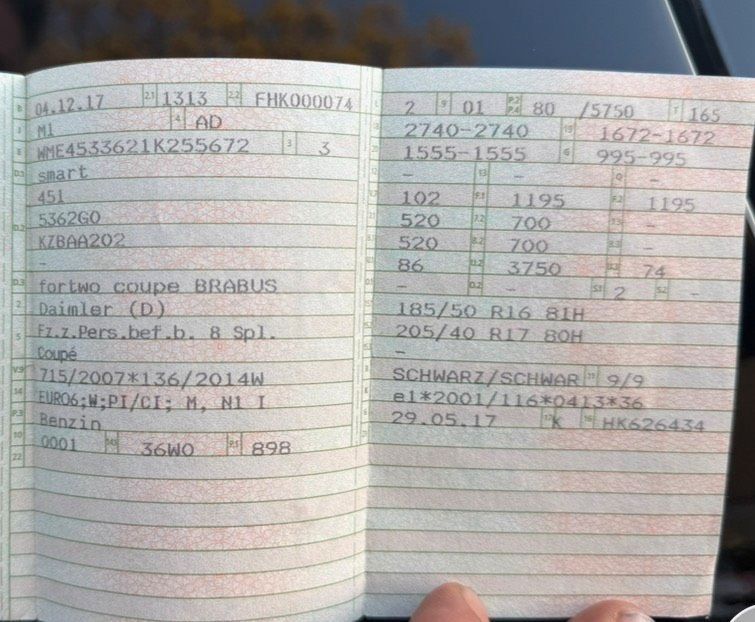 B 04.12.17 2.1 1313 2.2 FHK000074
J M1 4 AD
E WME4533621K255672 3 3
D.1 smart
451
5362G0
D.2 KZBAA202
-
D.3 fortwo coupe BRABUS
2 Daimler (D)
5 Fz.z.Pers.bef.b. 8 Spl.
Coupé
V.9 715/2007*136/2014W
14 EURO6;W;PI/CI; M, N1 I
P.3 Benzin
10 0001 14.1 36W0 P.1 898
22
L 2 9 01 P.2 P.4 80 /5750 T 165
18 2740-2740 19 1672-1672
20 1555-1555 G 995-995
12 - 13 - Q -
V.7 102 F.1 1195 F.2 1195
7.1 520 7.2 700 7.3 -
8.1 520 8.2 700 8.3 -
U.1 86 U.2 3750 U.3 74
O.1 - O.2 - S.1 2 S.2 -
15.1 185/50 R16 81H
15.2 205/40 R17 80H
15.3 -
R SCHWARZ/SCHWAR 11 9/9
K e1*2001/116*0413*36
6 29.05.17 17 K 16 HK626434